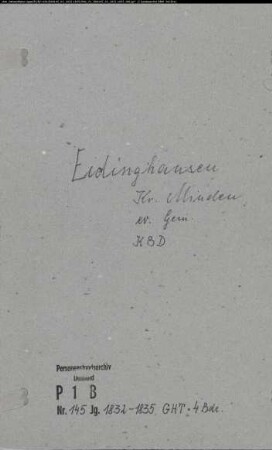 Eidinghausen
Kr. Minden,
ev. Gem.
KBD
Personenstandsarchiv
Detmold
P 1 B
Nr. 145 Jg. 1832-1835, GHT. 4 Bde.